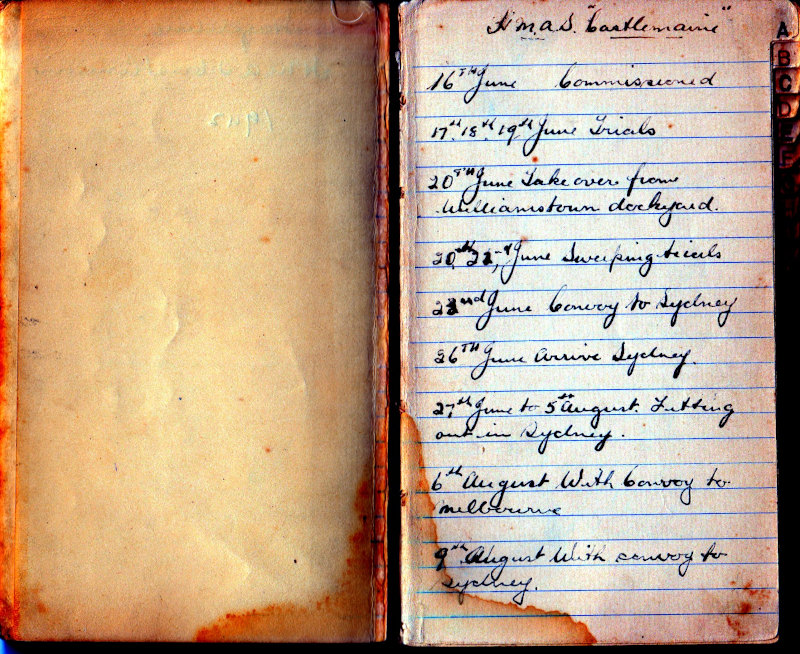 H.M.A.S. "Castlemaine"
16TH June Commissioned
17th, 18th, 19th June Trials
20TH June Take over from
Williamstown dockyard.
20th, 21st June Sweeping trials
22nd June Convoy to Sydney
26TH June Arrive Sydney.
27th June to 5th August. Fitting
out in Sydney.
6th August With Convoy to
Melbourne
9th August With convoy to
Sydney.
A
B
C
D
E
F
1942